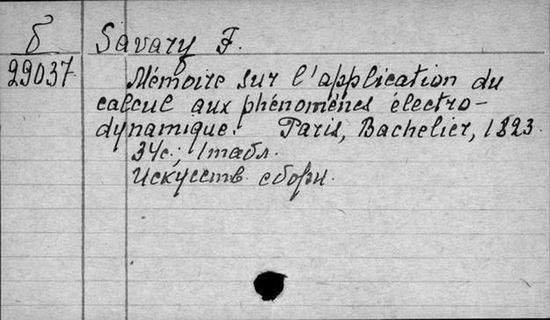 б
Savary F.
29037
Mémoire sur l'application du
calcul aux phénomènes électro-
dynamique. Paris, Bachelier, 1823.
34с.; 1 табл.
Искусств. сборн.